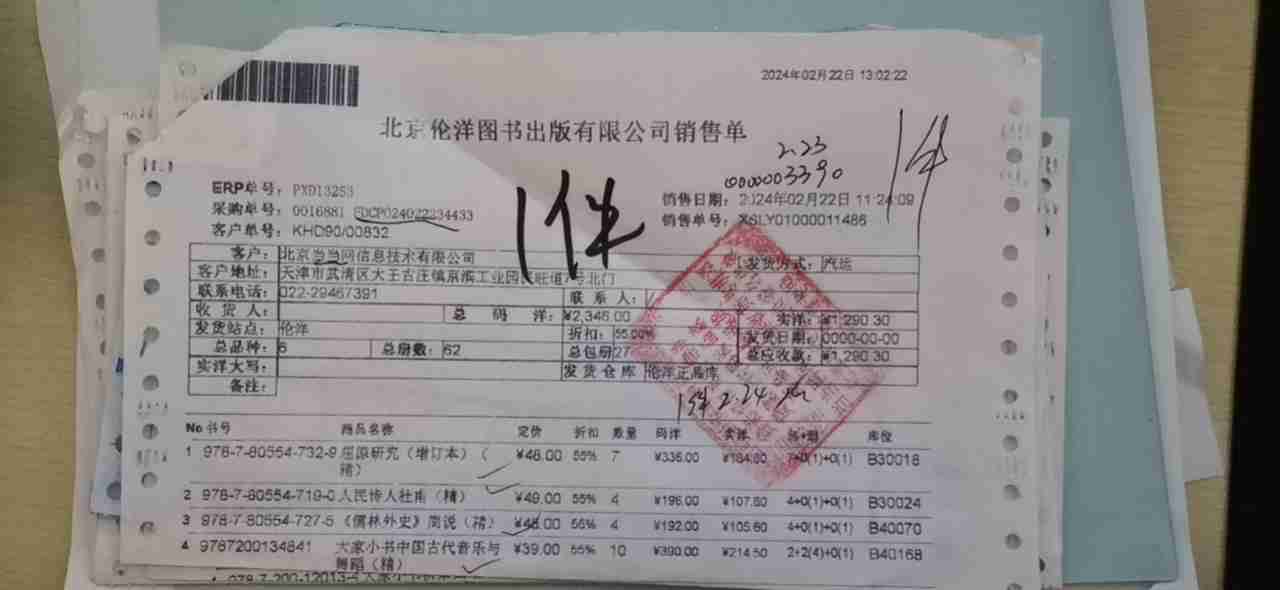 2024年02月22日 13:02:22
北京伦洋图书出版有限公司销售单
2.23
0000003390
1件
1件
ERP单号: PXD13253
销售日期: 2024年02月22日 11:24:09
采购单号: 0016881 FDCP024022234433
销售单号: XSLY01000011486
客户单号: KHD90/00832
客户: 北京当当网信息技术有限公司 发货方式: 汽运
客户地址: 天津市武清区大王古庄镇京滨工业园 旺道 号北门
联系电话: 022-29467391 联系人: /
收货人: 总码洋: ¥2,346.00 实洋: ¥1,290.30
发货站点: 伦洋 折扣: 55.00% 发货日期: 0000-00-00
总品种: 6 总册数: 62 总包册 27 总应收款: ¥1,290.30
实洋大写: 发货仓库 伦洋正品库
备注:
1件 2.24
No 书号 商品名称 定价 折扣 数量 码洋 实洋 库位
1 978-7-80554-732-9 屈原研究（增订本）（精） ¥48.00 55% 7 ¥336.00 ¥184.80 7+0(1)+0(1) B30018
2 978-7-80554-719-0 人民诗人杜甫（精） ¥49.00 55% 4 ¥196.00 ¥107.80 4+0(1)+0(1) B30024
3 978-7-80554-727-5 《儒林外史》简说（精） ¥48.00 55% 4 ¥192.00 ¥105.60 4+0(1)+0(1) B40070
4 9787200134841 大家小书中国古代音乐与舞蹈（精） ¥39.00 55% 10 ¥390.00 ¥214.50 2+2(4)+0(1) B40168